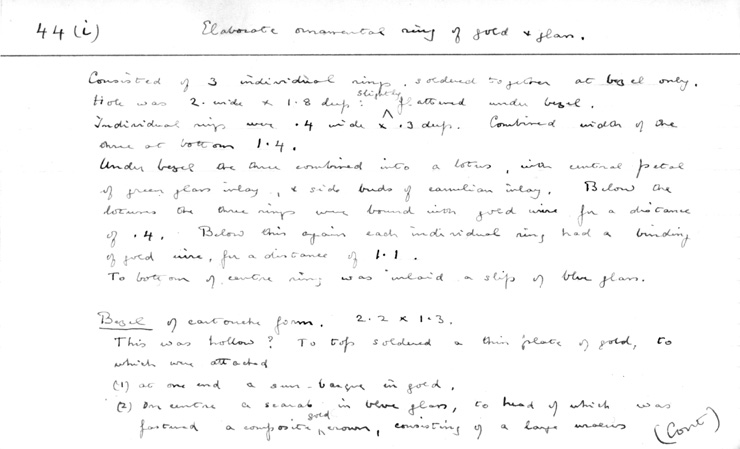 44(i) Elaborate ornamental ring of gold & glass.
Consisted of 3 individual rings, soldered together at bezel only.
Hole was 2. wide x 1.8 deep : slightly flattened under bezel.
Individual rings were .4 wide x .3 deep. Combined width of the
three at bottom 1.4.
Under bezel the three combined into a lotus, with central petal
of green glass inlay, & side buds of carnelian inlay. Below the
lotuses the three rings were bound with gold wire for a distance
of .4. Below this again each individual ring had a binding
of gold wire, for a distance of 1.1.
To bottom of centre ring was inlaid a slip of blue glass.
Bezel of cartouche form. 2.2 x 1.3.
This was hollow? To top soldered a thin plate of gold, to
which were attached
(1) at one end a sun-barque in gold.
(2) In centre a scarab in blue glass, to head of which was
fastened a composite gold crown, consisting of a large uraeus
(Cont)